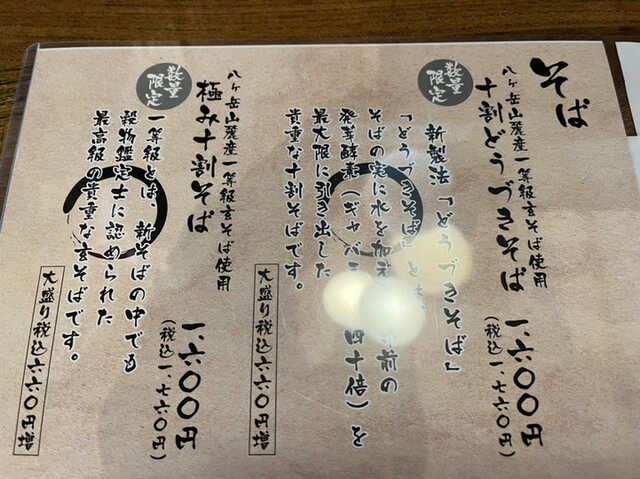 そば
数量
限定
八ヶ岳山麓産一等級玄そば使用
十割どうづきそば
一、六〇〇円
(税込一、七六〇円)
新製法「どうづきそば」
「どうづきそば」とは、
そばの実に水を加え 前の
発芽酵素(ギャバ 四十倍)を
最大限に引き出した
貴重な十割そばです。
大盛り税込六六〇円増
数量
限定
八ヶ岳山麓産一等級玄そば使用
極み十割そば
一、六〇〇円
(税込一、七六〇円)
一等級とは、新そばの中でも
穀物鑑定士に認められた
最高級の貴重な玄そばです。
大盛り税込六六〇円増